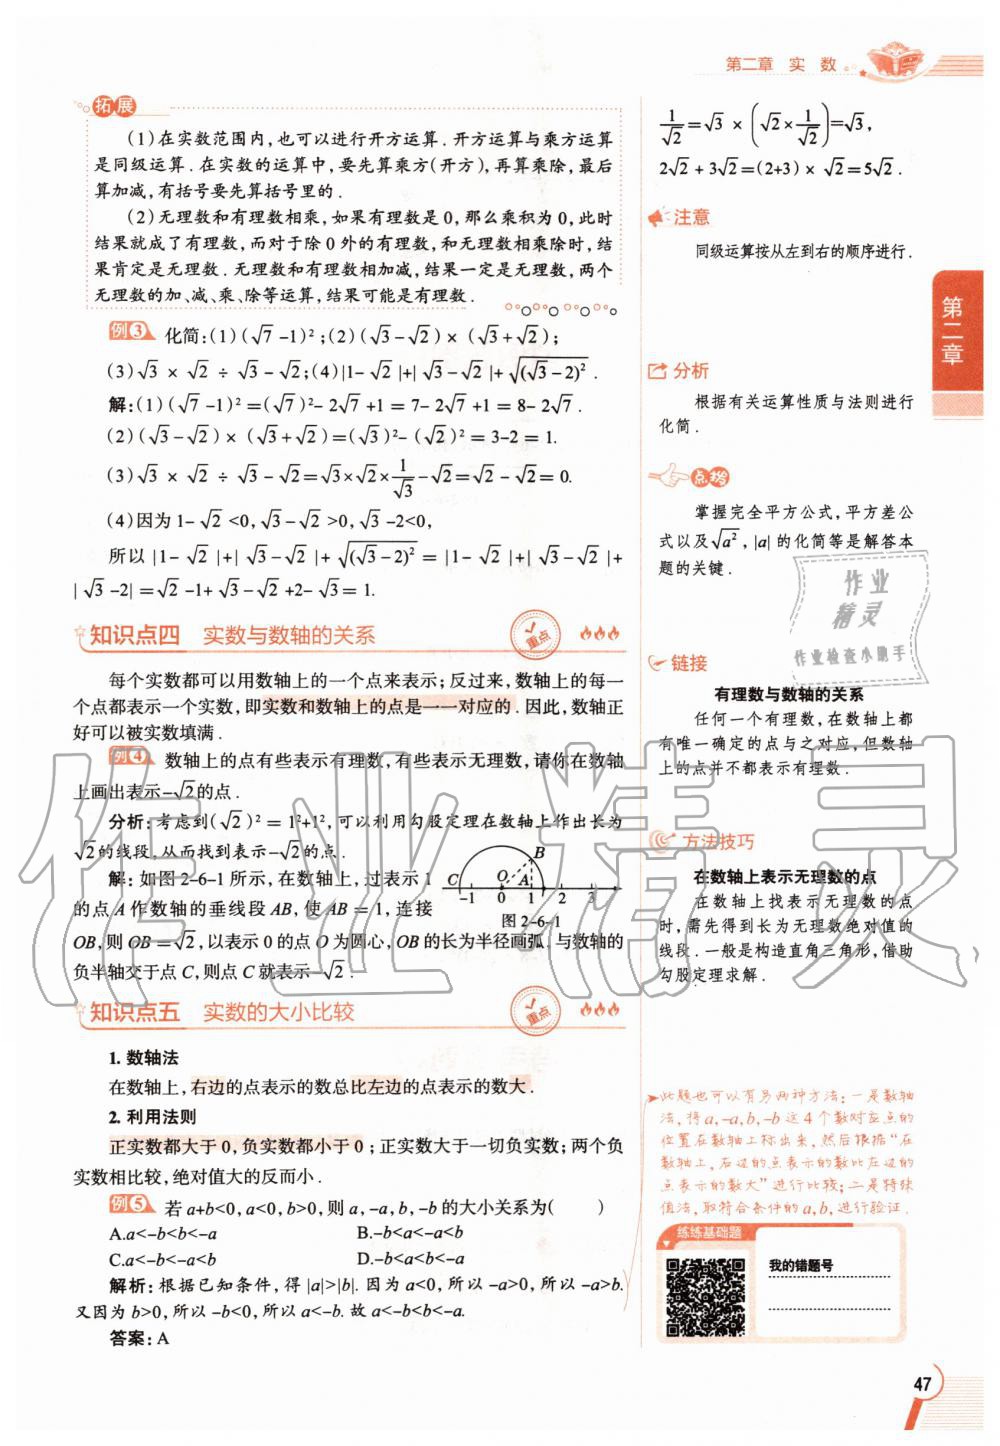 第二章 实 数
拓展
(1)在实数范围内,也可以进行开方运算.开方运算与乘方运算
是同级运算.在实数的运算中,要先算乘方(开方),再算乘除,最后
算加减,有括号要先算括号里的.
(2)无理数和有理数相乘,如果有理数是0,那么乘积为0,此时
结果就成了有理数,而对于除0外的有理数,和无理数相乘除时,结
果肯定是无理数.无理数和有理数相加减,结果一定是无理数,两个
无理数的加、减、乘、除等运算,结果可能是有理数.
例3 化简:(1)(√7-1)²;(2)(√3-√2)×(√3+√2);
(3)√3×√2÷√3-√2;(4)|1-√2|+|√3-√2|+√(√3-2)².
解:(1)(√7-1)²=(√7)²-2√7+1=7-2√7+1=8-2√7.
(2)(√3-√2)×(√3+√2)=(√3)²-(√2)²=3-2=1.
(3)√3×√2÷√3-√2=√3×√2×1/√3-√2=√2-√2=0.
(4)因为1-√2<0,√3-√2>0,√3-2<0,
所以|1-√2|+|√3-√2|+√(√3-2)²=|1-√2|+|√3-√2|+
|√3-2|=√2-1+√3-√2+2-√3=1.
知识点四 实数与数轴的关系
重点
每个实数都可以用数轴上的一个点来表示;反过来,数轴上的每一
个点都表示一个实数,即实数和数轴上的点是一一对应的.因此,数轴正
好可以被实数填满.
例4 数轴上的点有些表示有理数,有些表示无理数,请你在数轴
上画出表示-√2的点.
分析:考虑到(√2)²=1²+1²,可以利用勾股定理在数轴上作出长为
√2的线段,从而找到表示-√2的点.
解:如图2-6-1所示,在数轴上,过表示1
的点A作数轴的垂线段AB,使AB=1,连接
OB,则OB=√2,以表示0的点O为圆心,OB的长为半径画弧.与数轴的
负半轴交于点C,则点C就表示-√2.
B
C O A
-1 0 1 2 3
图2-6-1
知识点五 实数的大小比较
重点
1.数轴法
在数轴上,右边的点表示的数总比左边的点表示的数大.
2.利用法则
正实数都大于0,负实数都小于0;正实数大于一切负实数;两个负
实数相比较,绝对值大的反而小.
例5 若a+b<0,a<0,b>0,则a,-a,b,-b的大小关系为( )
A.a<-b<b<-a B.-b<a<-a<b
C.a<-b<-a<b D.-b<a<b<-a
解析:根据已知条件,得|a|>|b|.因为a<0,所以-a>0,所以-a>b.
又因为b>0,所以-b<0,所以a<-b.故a<-b<b<-a.
答案:A
1/√2=√3×(√2×1/√2)=√3,
2√2+3√2=(2+3)×√2=5√2.
注意
同级运算按从左到右的顺序进行.
分析
根据有关运算性质与法则进行
化简.
点拨
掌握完全平方公式,平方差公
式以及√a²,|a|的化简等是解答本
题的关键.
链接
有理数与数轴的关系
任何一个有理数,在数轴上都
有唯一确定的点与之对应,但数轴
上的点并不都表示有理数.
方法技巧
在数轴上表示无理数的点
在数轴上找表示无理数的点
时,需先得到长为无理数绝对值的
线段.一般是构造直角三角形,借助
勾股定理求解.
此题也可以有另两种方法:一是数轴
法,将a,-a,b,-b这4个数对应点的
位置在数轴上标出来,然后根据“在
数轴上,右边的点表示的数比左边的
点表示的数大”进行比较;二是特殊
值法,取符合条件的a,b,进行验证.
练练基础题
我的错题号
第二章
47
作业精灵
作业
精灵
作业检查小助手